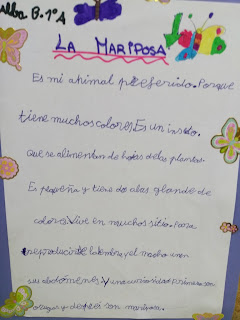 Alba B. 1ºA
LA MARIPOSA
Es mi animal preferido. Porque
tiene muchos colores. Es un insecto.
Que se alimentan de hojas de las plantas.
Es pequeña y tiene do alas glande de
colores. Vive en muchos sitio. Para
reproducirse la hembra y el macho unen
sus abdomenes. Y una curiosidad primero son
orugas y después son mariposa.